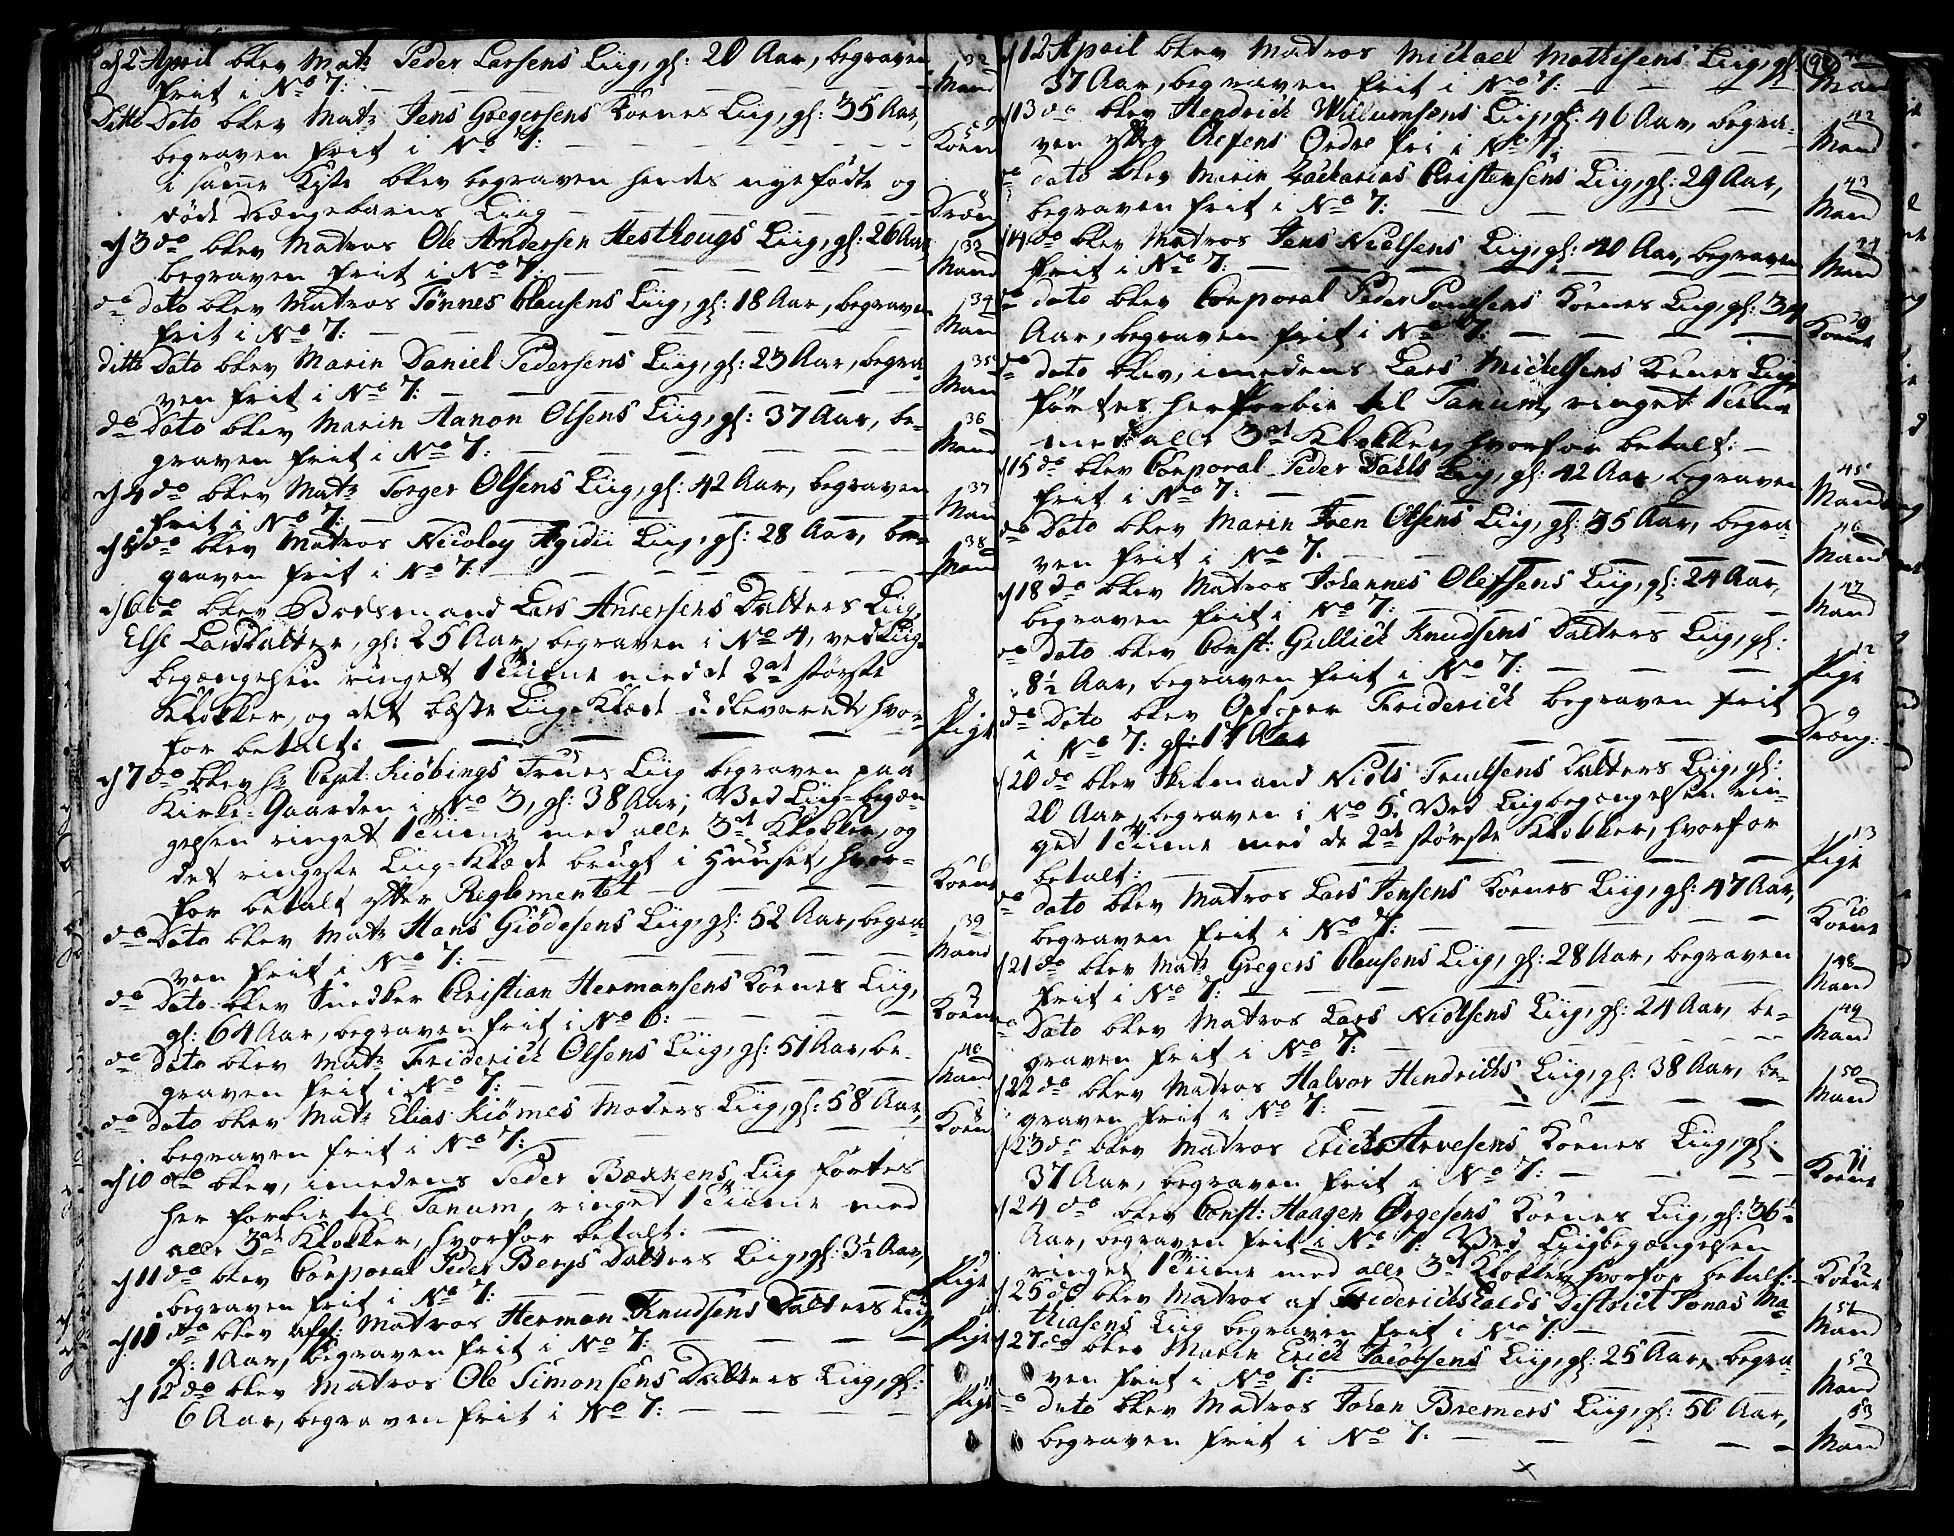 d 2 April blev Matr Peder Larsens Liig, gl: 20 Aar, begraven
frit i No 7: 32 Mand
Ditto Dato blev Matr Jens Gregersens Koenes Liig, gl: 35 Aar,
begraven frit i No 7: Koene
i samme Kiste blev begraven hendes nyefødte og
død Drængebarns Liig Dræng
d 3 do blev Matros Ole Andersen Hesthougs Liig, gl: 26 Aar
begraven frit i No 7: 33 Mand
do Dato blev Matros Tønnes Clausens Liig, gl: 18 Aar, begraven
frit i No 7: 34 Mand
ditto Dato blev Marin Daniel Pedersens Liig, gl: 23 Aar, begra-
ven frit i No 7: 35 Mand
do Dato blev Marin Aanon Olsens Liig, gl: 37 Aar, be-
graven frit i No 7: 36 Mand
d 4 do blev Matr Torger Olsens Liig, gl: 42 Aar, begraven
frit i No 7: 37 Mand
d 5 do blev Matros Nicolay Agidii Liig, gl: 28 Aar, be-
graven frit i No 7: 38 Mand
d 6 do blev Bodsmand Lars Andersens Datters Liig
Else Larsdatter, gl: 25 Aar, begraven i No 4, ved Liig-
begængelsen ringet 1 Time med de 2de største
Klokker, og det bæste Liig-Klæde udleveret, hvor-
for betalt: 8 Pige
d 7 do blev hr Capt: Kiöbings Frues Liig begraven paa
Kirke-Gaarden i No 3, gl: 38 Aar; Ved Liig-begæn-
gelsen ringet 1 Time med alle 3de Klokker, og
det ringeste Liig-Klæde brugt i Huuset, hvor-
for betalt efter Reglementet 6 Koene
do Dato blev Matr Hans Giödesens Liig, gl: 52 Aar, begra-
ven frit i No 7: 39 Mand
do Dato blev Snedker Christian Hermansens Koenes Liig,
gl: 64 Aar, begraven frit i No 6: 7 Koene
do Dato blev Matr Friderich Olsens Liig, gl: 51 Aar, be-
graven frit i No 7: 40 Mand
do Dato blev Matr Elias Kiömes Moders Liig, gl: 58 Aar,
begraven frit i No 7: 8 Koene
d 10 do blev, imedens Peder Bækkens Liig førtes
her forbie til Tanum, ringet 1 Time med
alle 3de Klokker, hvorfor betalt:
d 11 do blev Corporal Peder Bergs Datters Liig, gl: 3½ Aar,
begraven frit i No 7: 9 Pige
d 11 do blev afgl: Matros Herman Knudsens Datters Liig
gl: 1 Aar, begraven frit i No 7: Pige
d 12 do blev Matros Ole Simonsens Datters Liig, gl:
6 Aar, begraven frit i No 7: 11 Pige
d 12 April blev Matros Michael Mattisens Liig, gl:
37 Aar, begraven frit i No 7: 41 Mand
d 13 do blev Hendrich Willumsens Liig, gl: 46 Aar, begra-
ven efter Ordre fri i No 7: 42 Mand
do dato blev Marin Zacharias Christensens Liig, gl: 29 Aar,
begraven frit i No 7: 43 Mand
d 14 do blev Matros Jens Nielsens Liig, gl: 40 Aar, begraven
frit i No 7: 44 Mand
do dato blev Corporal Peder Poulsens Koenes Liig, gl: 34
Aar, begraven frit i No 7: 9 Koene
do dato blev, imedens Lars Michelsens Koenes Liig
førtes her forbie til Tanum, ringet 1 Time
med alle 3de Klokker, hvorfor betalt:
d 15 do blev Corporal Peder Dahls Liig, gl: 42 Aar, begraven
frit i No 7: 45 Mand
do Dato blev Marin Iven Olsens Liig, gl: 35 Aar, begra-
ven frit i No 7. 46 Mand
d 18 do blev Matros Johannes Olefsens Liig, gl: 24 Aar,
begraven frit i No 7: 47 Mand
do Dato blev Const: Gullich Knudsens Datters Liig, gl:
8½ Aar, begraven frit i No 7: 12 Pige
do Dato blev Friderich begraven frit
i No 7: gl: 17 Aar 9 Dræng:
d 20 do blev Niels Truelsens Datters Liig, gl:
20 Aar, begraven i No 5. Ved Liigbegængelsen rin-
get 1 Time med de 2de største Klokker, hvorfor
betalt: 13 Pige
do dato blev Matros Lars Jensens Koenes Liig, gl: 47 Aar,
begraven frit i No 7: 10 Koene
d 21 do blev Matr Gregers Clausens Liig, gl: 28 Aar, begraven
frit i No 7: 48 Mand
do Dato blev Matros Lars Nielsens Liig, gl: 24 Aar, be-
graven frit i No 7: 49 Mand
d 22 do blev Matros Halvor Hendrichs Liig, gl: 38 Aar, be-
graven frit i No 7: 50 Mand
d 23 do blev Matros Erich Arvesens Koenes Liig, gl:
37 Aar, begraven frit i No 7: 11 Koene
d 24 do blev Const: Haagen Ørgesens Koenes Liig, gl: 36½
Aar, begraven frit i No 7: Ved Liigbegængelsen
ringet 1 Time med alle 3de Klokker, hvorfor betalt: 12 Koene
d 25 do blev Matros af Friderichshalds District Jonas Ma-
thiasens Liig begraven frit i No 7: 51 Mand
d 27 do blev Marin Erich Jacobsens Liig, gl: 25 Aar, begra-
ven frit i No 7: 52 Mand
do dato blev Matros Johan Bremers Liig, gl: 50 Aar,
begraven frit i No 7: 53 Mand